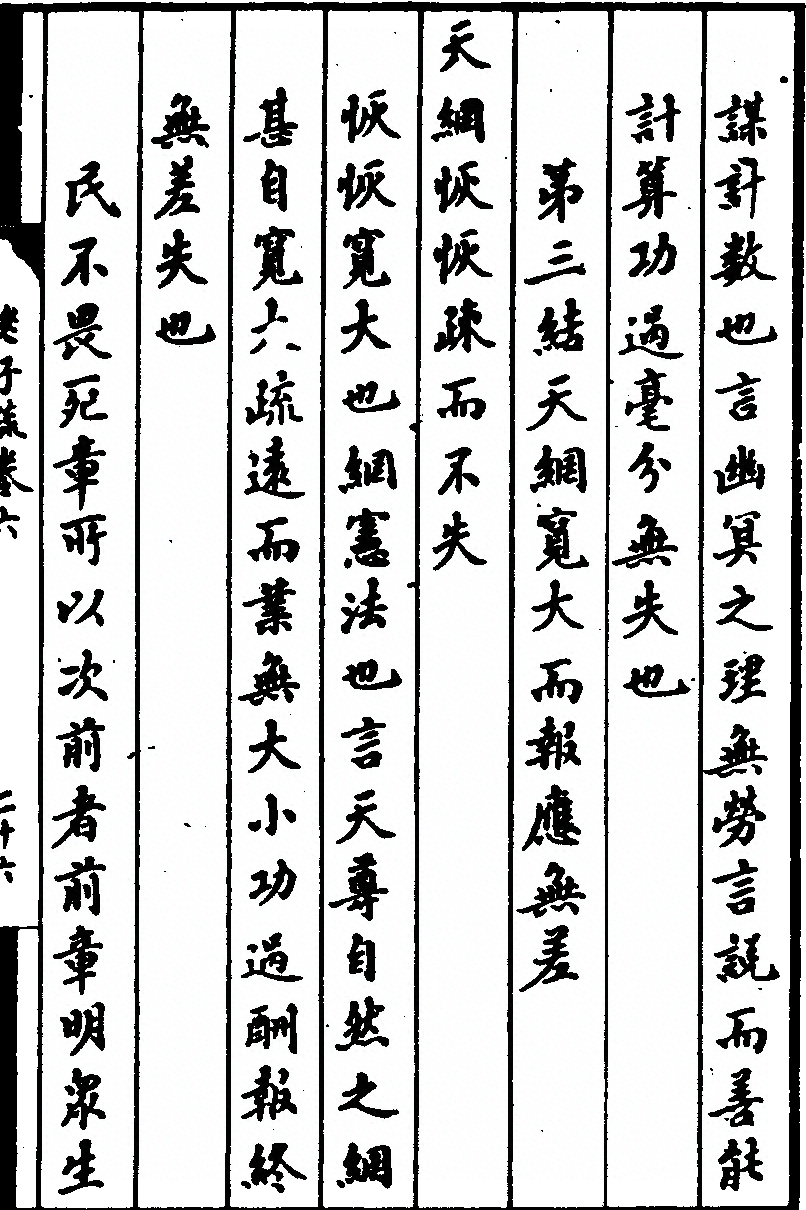 謀計數也言幽冥之理無勞言説而善能
計算功過毫分無失也
第三結天網寬大而報應無差
天網恢恢疎而不失
恢恢寬大也網憲法也言天尊自然之網
甚自寬大疏遠而業無大小功過酬報終
無差失也
民不畏死章所以次前者前章明衆生
老子疏卷六
二十六